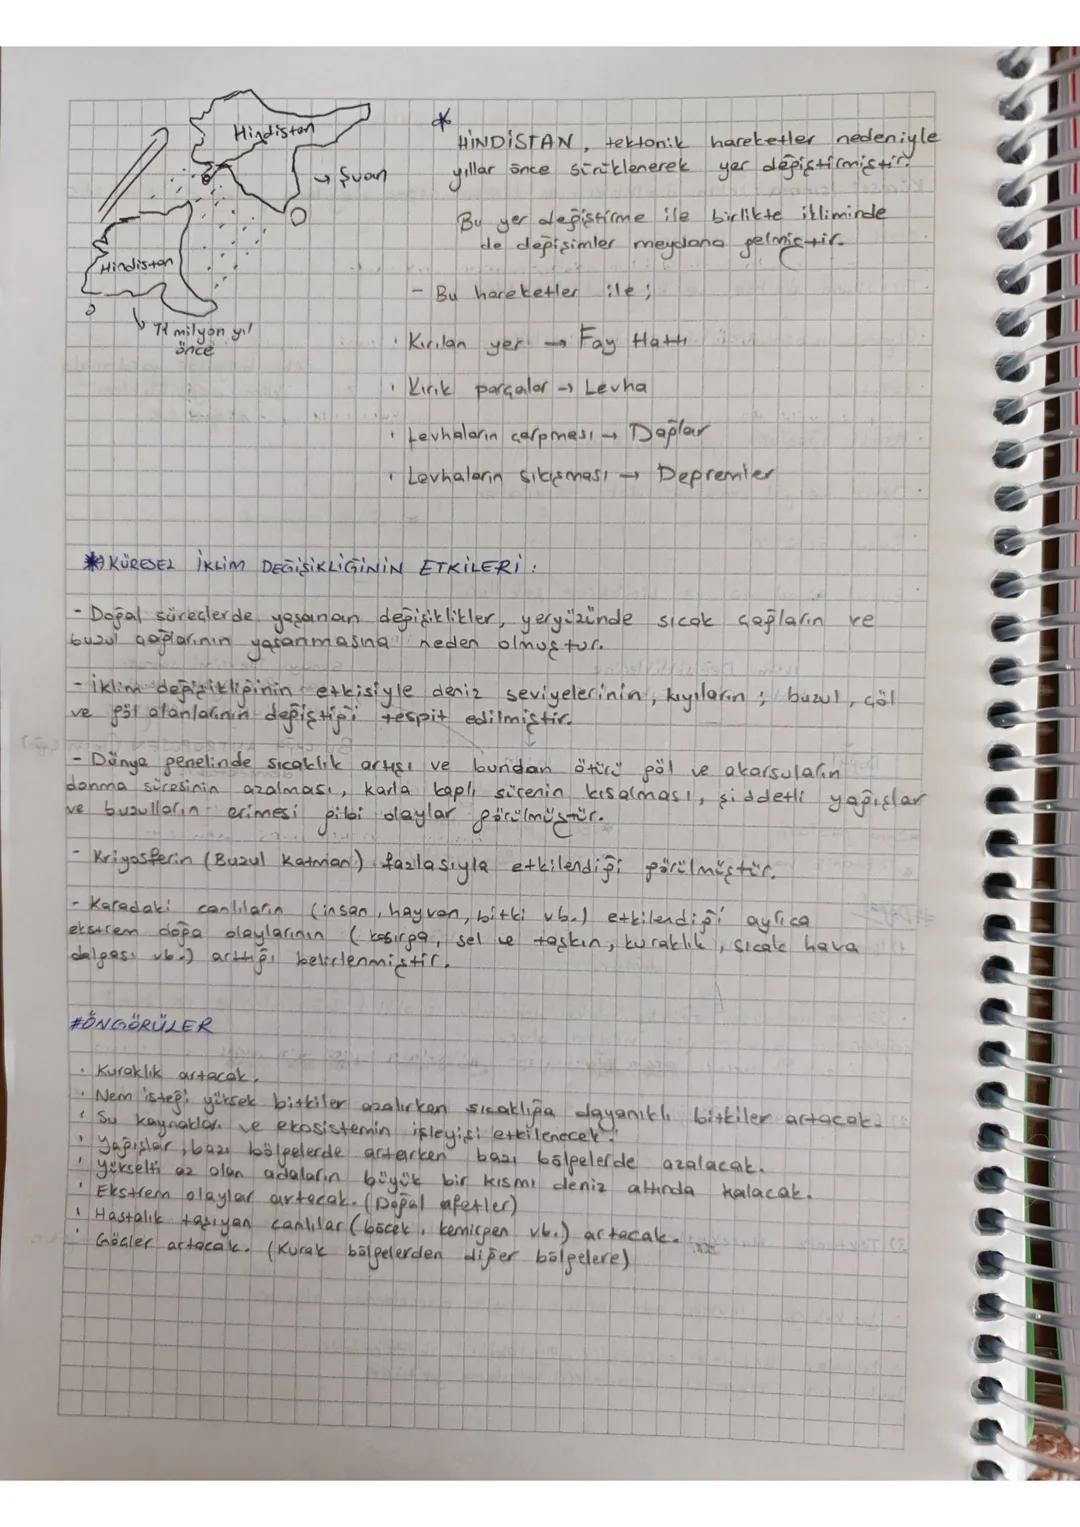 Hindistan
→ Şuan
Hindistan
71 milyon yıl
önce
* HİNDİSTAN, tektonik hareketler nedeniyle
yıllar önce sürüklenerek yer değiştirmiştir.
Bu yer değiştirme ile birlikte ikliminde
de değişimler meydana gelmiştir.
- Bu hareketler ile;
· Kırılan yer → Fay Hattı
· Kırık parçalar → Levha
· Levhaların çarpması → Dağlar
· Levhaların sıkışması → Depremler
*) KÜRESEL İKLİM DEĞİŞİKLİĞİNİN ETKİLERİ:
- Doğal süreçlerde yaşanan değişiklikler, yeryüzünde sıcak çağların ve
buzul çağlarının yaşanmasına neden olmuştur.
- İklim değişikliğinin etkisiyle deniz seviyelerinin, kıyıların; buzul, çöl
ve göl alanlarının değiştiği tespit edilmiştir.
- Dünya genelinde sıcaklık artışı ve bundan ötürü göl ve akarsuların
donma süresinin azalması, karla kaplı sürenin kısalması, şiddetli yağışlar
ve buzulların erimesi gibi olaylar görülmüştür.
- Kriyosferin (Buzul Katman) fazlasıyla etkilendiği görülmüştür.
- Karadaki canlıların (insan, hayvan, bitki vb.) etkilendiği ayrıca
ekstrem doğa olaylarının (kasırga, sel ve taşkın, kuraklık, sıcak hava
dalgası vb.) arttığı belirlenmiştir.
#ÖNGÖRÜLER
· Kuraklık artacak.
· Nem isteği yüksek bitkiler azalırken sıcaklığa dayanıklı bitkiler artacak.
· Su kaynakları ve ekosistemin işleyişi etkilenecek.
· Yağışlar, bazı bölgelerde artarken bazı bölgelerde azalacak.
· Yükselti az olan adaların büyük bir kısmı deniz altında kalacak.
· Ekstrem olaylar artacak. (Doğal afetler)
· Hastalık taşıyan canlılar (böcek, kemirgen vb.) artacak.
· Göçler artacak. (Kurak bölgelerden diğer bölgelere)